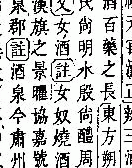 酒百藥之長東方朔
氏尚明水殷尚醴周
又女酒註女奴燒酒
旗之景曜協嘉號
泉郡註酒泉今肅州